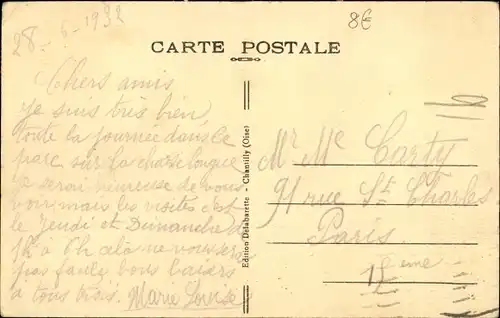 28-6-1932
8€
CARTE POSTALE
Chers amis
je suis très bien,
toute la journée dans le
parc sur la chaise longue
je serai heureuse de vous
voir mais les visites c'est
le Jeudi et Dimanche de
à 5h celà ne vous sera
pas facile bons baisers
à tous trois. Marie Louise
Edition Delabarette - Chantilly (Oise)
Mr Me Carty
91 rue St Charles
Paris
15 eme